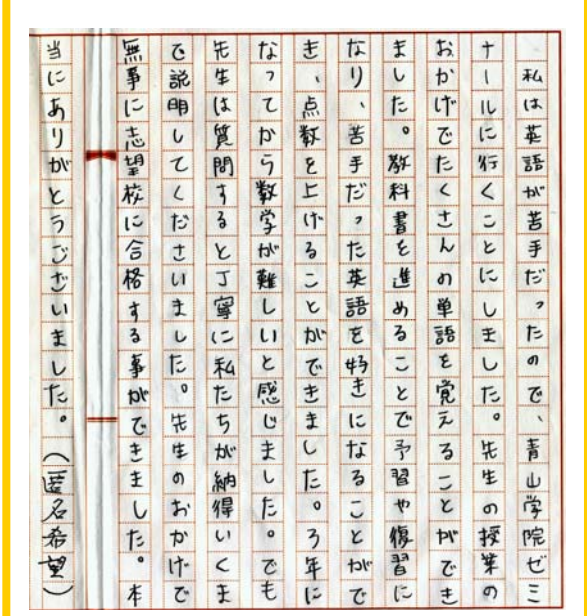 私は英語が苦手だったので、青山学院ゼミ
ナールに行くことにしました。先生の授業の
おかげでたくさんの単語を覚えることができ
ました。教科書を進めることで予習や復習に
なり、苦手だった英語を好きになることがで
き、点数を上げることができました。3年に
なってから数学が難しいと感じました。でも
先生は質問すると丁寧に私たちが納得いくま
で説明してくださいました。先生のおかげで
無事に志望校に合格する事ができました。本
当にありがとうございました。（匿名希望）